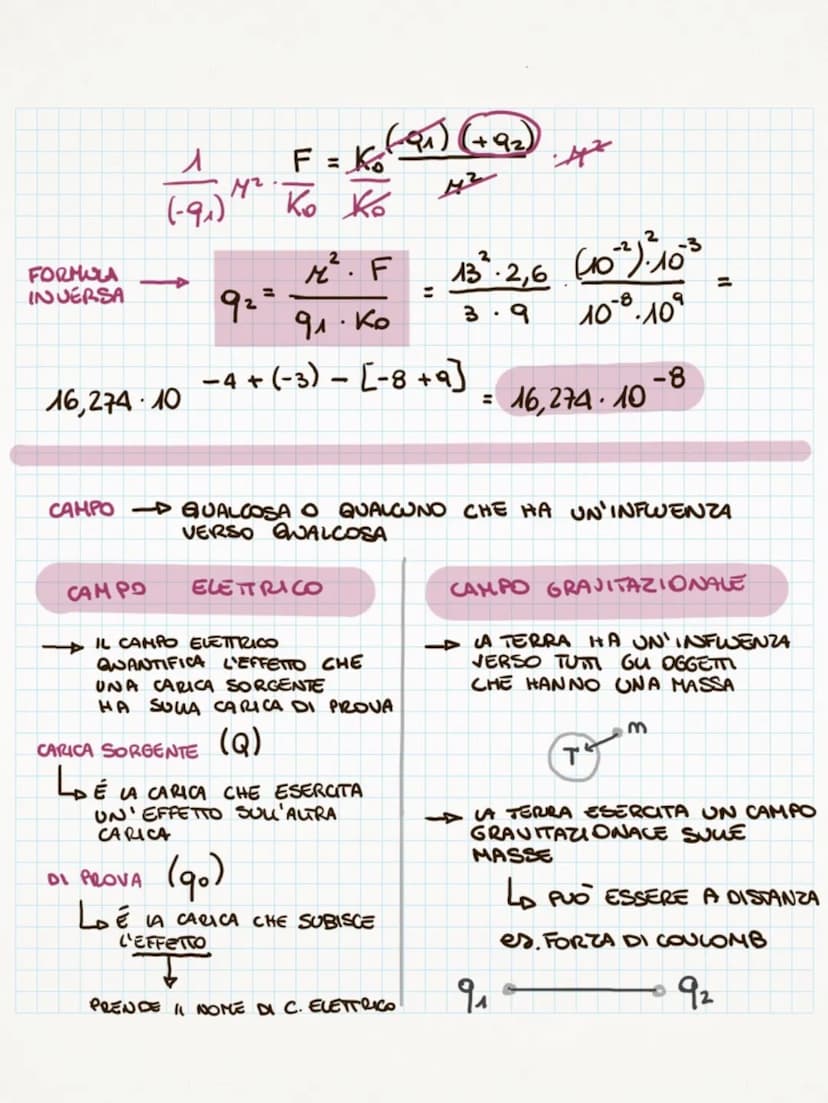 1/(-q1) r² · F/K0 = K0/K0 (-q1)(+q2)/r² · r²
FORMULA INVERSA → q2 = r² · F / q1 · K0 = 13² · 2,6 / 3 · 9 · (10⁻²)² · 10⁻³ / 10⁻⁸ · 10⁹ =
16,274 · 10 ^ -4 + (-3) - [-8 + 9] = 16,274 · 10⁻⁸
CAMPO → QUALCOSA O QUALCUNO CHE HA UN'INFLUENZA
VERSO QUALCOSA
CAMPO ELETTRICO
→ IL CAMPO ELETTRICO
QUANTIFICA L'EFFETTO CHE
UNA CARICA SORGENTE
HA SULLA CARICA DI PROVA
CARICA SORGENTE (Q)
↳ É LA CARICA CHE ESERCITA
UN'EFFETTO SULL'ALTRA
CARICA
DI PROVA (q0)
↳ É LA CARICA CHE SUBISCE
L'EFFETTO
↓
PRENDE IL NOME DI C. ELETTRICO
CAMPO GRAVITAZIONALE
→ LA TERRA HA UN'INFLUENZA
VERSO TUTTI GLI OGGETTI
CHE HANNO UNA MASSA
T m
→ LA TERRA ESERCITA UN CAMPO
GRAVITAZIONALE SULLE
MASSE
↳ PUÒ ESSERE A DISTANZA
es. FORZA DI COULOMB
q1 q2